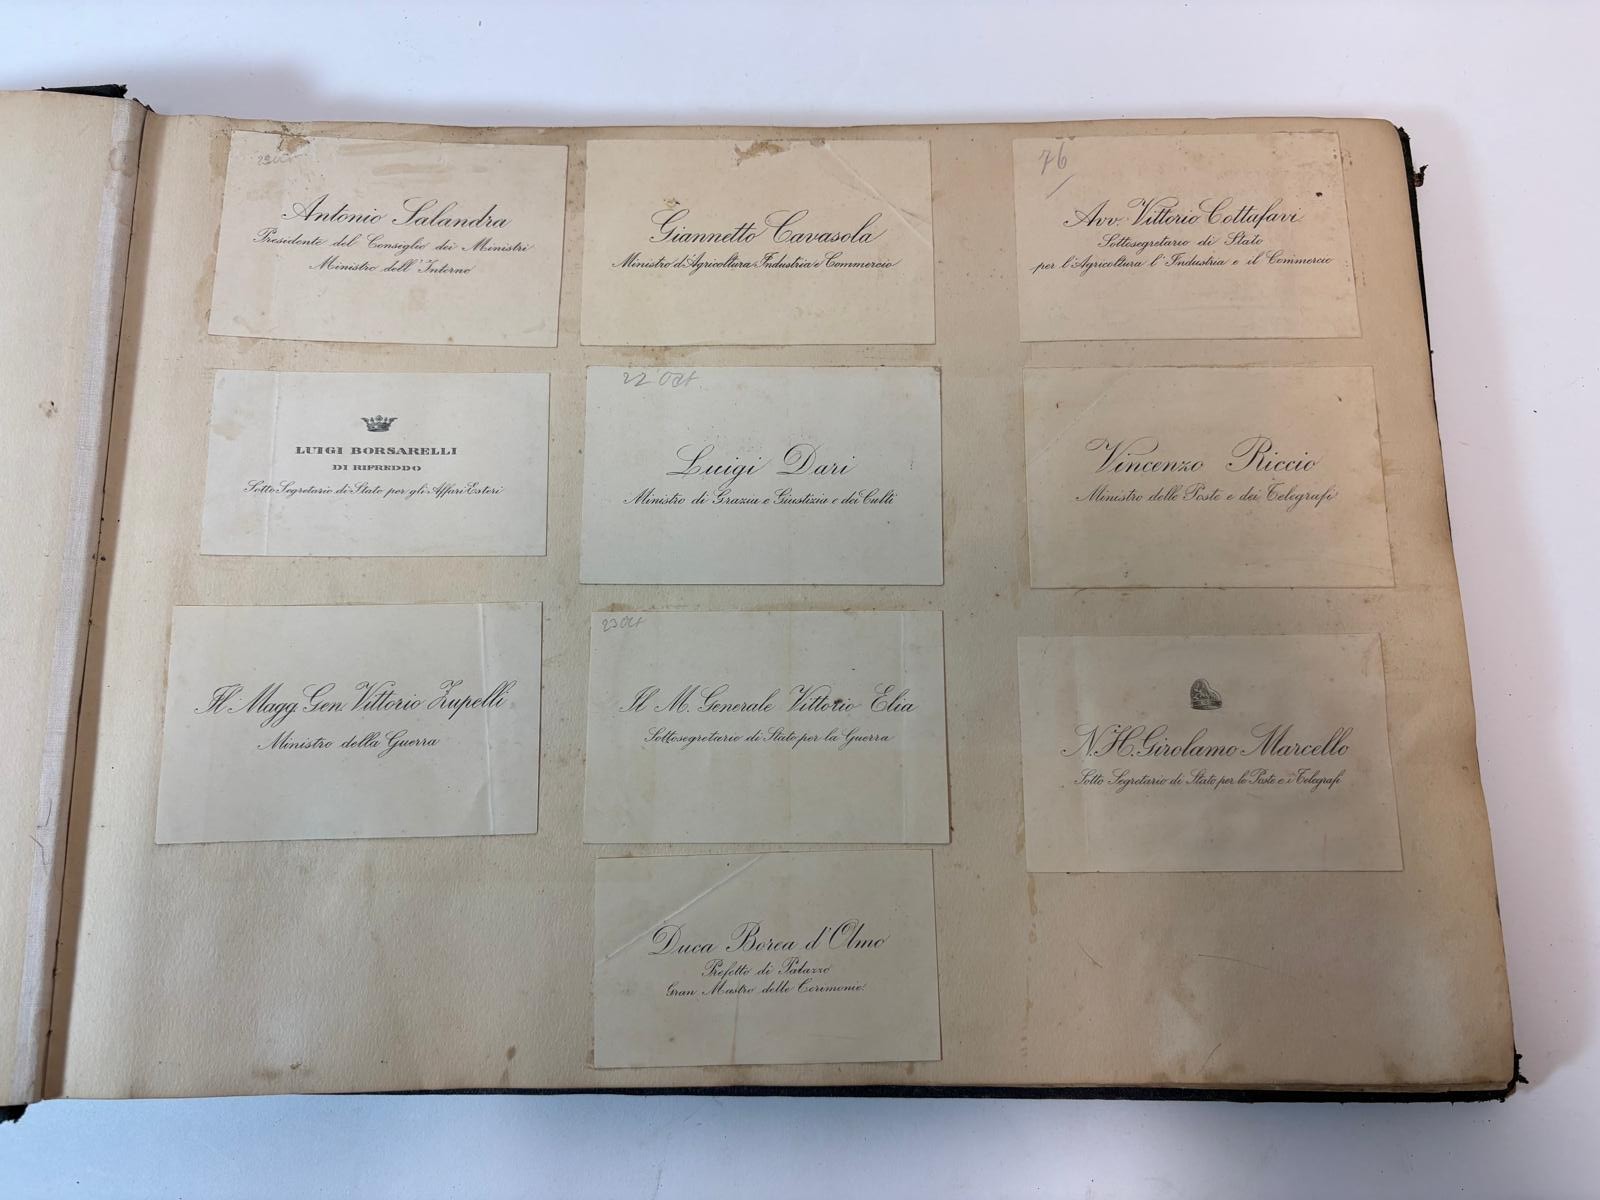 Antonio Salandra
Presidente del Consiglio dei Ministri
Ministro dell'Interno
Giannetto Cavasola
Ministro d'Agricoltura, Industria e Commercio
76
Avv. Vittorio Cottafavi
Sottosegretario di Stato
per l'Agricoltura l'Industria e il Commercio
LUIGI BORSARELLI
DI RIFREDDO
Sotto Segretario di Stato per gli Affari Esteri
22 Oct
Luigi Dari
Ministro di Grazia e Giustizia e dei Culti
Vincenzo Riccio
Ministro delle Poste e dei Telegrafi
Il Magg. Gen. Vittorio Zupelli
Ministro della Guerra
23 Oct
Il M. Generale Vittorio Elia
Sottosegretario di Stato per la Guerra
N.H. Girolamo Marcello
Sotto Segretario di Stato per le Poste e i Telegrafi
Duca Borea d'Olmo
Prefetto di Palazzo
Gran Mastro delle Cerimonie.